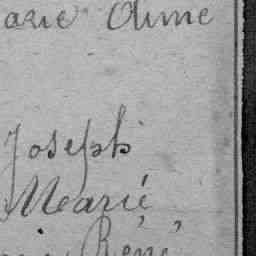 arie Anne
Joseph
Marie
René